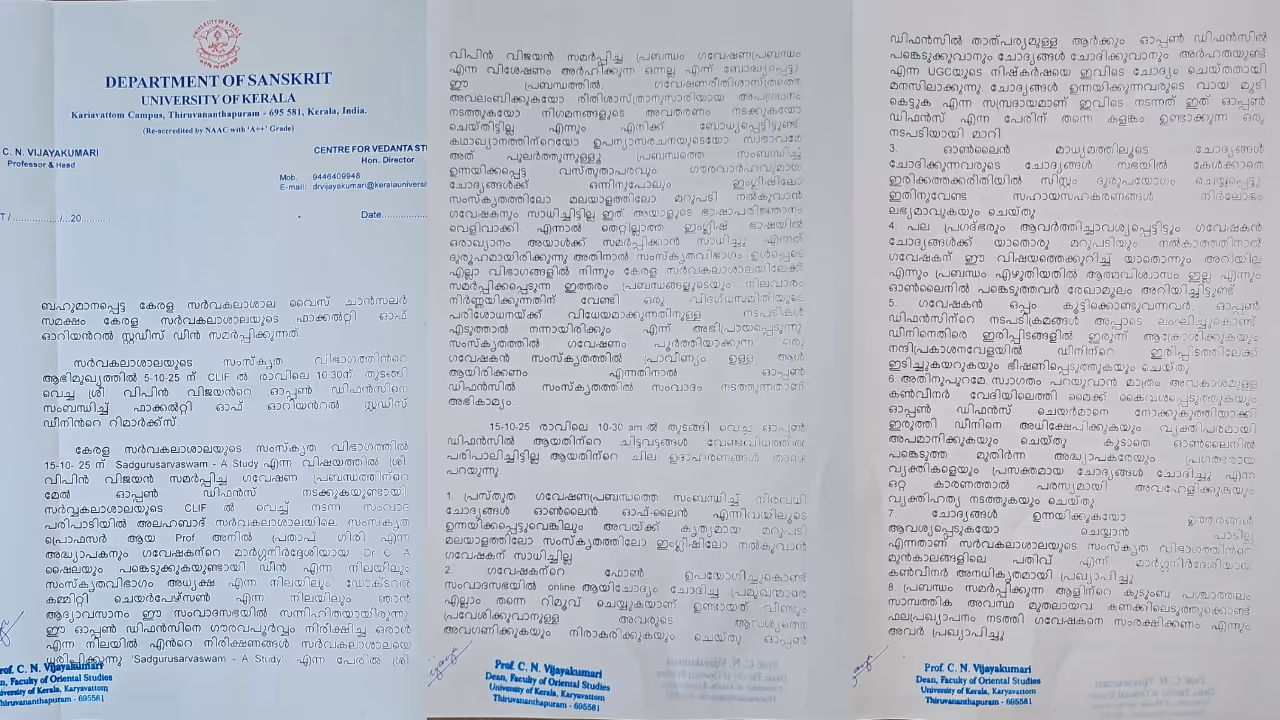 UNIVERSITY OF KERALA
DEPARTMENT OF SANSKRIT
UNIVERSITY OF KERALA
Kariavattom Campus, Thiruvananthapuram - 695 581, Kerala, India.
(Re-accredited by NAAC with 'A++' Grade)
C. N. VIJAYAKUMARI
Professor & Head
CENTRE FOR VEDANTA ST
Hon. Director
Mob. 9446409948
E-mail: drvijayakumari@keralauniversi
T/................/20.........
Date..............
ബഹുമാനപ്പെട്ട കേരള സർവകലാശാല വൈസ് ചാൻസലർ
സമക്ഷം കേരള സർവകലാശാലയുടെ ഫാക്കൽറ്റി ഓഫ്
ഓറിയൻറൽ സ്റ്റഡീസ് ഡീൻ സമർപ്പിക്കുന്നത്.
സർവകലാശാലയുടെ സംസ്കൃത വിഭാഗത്തിൻറെ
ആഭിമുഖ്യത്തിൽ 5-10-25 ന് CLIF ൽ രാവിലെ 10.30ന് തുടങ്ങി
വെച്ച ശ്രീ വിപിൻ വിജയൻറെ ഓപ്പൺ ഡിഫൻസിനെ
സംബന്ധിച്ച് ഫാക്കൽറ്റി ഓഫ് ഓറിയൻറൽ സ്റ്റഡീസ്
ഡീനിൻറെ റിമാർക്ക്സ്.
കേരള സർവകലാശാലയുടെ സംസ്കൃത വിഭാഗത്തിൽ
15-10- 25 ന് Sadgurusarvaswam - A Study എന്ന വിഷയത്തിൽ ശ്രീ
വിപിൻ വിജയൻ സമർപ്പിച്ച ഗവേഷണ പ്രബന്ധത്തിൻറെ
മേൽ ഓപ്പൺ ഡിഫൻസ് നടക്കുകയുണ്ടായി
സർവ്വകലാശാലയുടെ CLIF ൽ വെച്ച് നടന്ന സംവാദ
പരിപാടിയിൽ അലഹബാദ് സർവകലാശാലയിലെ സംസ്കൃത
പ്രൊഫസർ ആയ Prof അനിൽ പ്രതാപ് ഗിരി എന്ന
അദ്ധ്യാപകനും ഗവേഷകൻറെ മാർഗ്ഗനിർദ്ദേശിയായ Dr C. A
ഷൈലയും പങ്കെടുക്കുകയുണ്ടായി. ഡീൻ എന്ന നിലയിലും
സംസ്കൃതവിഭാഗം അധ്യക്ഷ എന്ന നിലയിലും ഡോക്ടറൽ
കമ്മിറ്റി ചെയർപേഴ്സൺ എന്ന നിലയിലും ഞാൻ
ആദ്യാവസാനം ഈ സംവാദസഭയിൽ സന്നിഹിതയായിരുന്നു
ഈ ഓപ്പൺ ഡിഫൻസിനെ ഗൗരവപൂർവ്വം നിരീക്ഷിച്ച ഒരാൾ
എന്ന നിലയിൽ എൻറെ നിരീക്ഷണങ്ങൾ സർവകലാശാലയെ
ധരിപ്പിക്കുന്നു 'Sadgurusarvaswam - A Study' എന്ന പേരിൽ ശ്രീ
Prof. C. N. Vijayakumari
an, Faculty of Oriental Studies
niversity of Kerala, Karyavattom
hiruvananthapuram - 695581
വിപിൻ വിജയൻ സമർപ്പിച്ച പ്രബന്ധം ഗവേഷണപ്രബന്ധം
എന്ന വിശേഷണം അർഹിക്കുന്ന ഒന്നല്ല എന്ന് ബോദ്ധ്യപ്പെട്ടു
ഈ പ്രബന്ധത്തിൽ. ഗവേഷണരീതിശാസ്ത്രത്തെ
അവലംബിക്കുകയോ രീതിശാസ്ത്രാനുസാരിയായ അപഗ്രഥനം
നടത്തുകയോ നിഗമനങ്ങളുടെ അവതരണം നടക്കുകയോ
ചെയ്തിട്ടില്ല എന്നും എനിക്ക് ബോധ്യപ്പെട്ടിട്ടുണ്ട്
കഥാഖ്യാനത്തിൻറെയോ ഉപന്യാസരചനയുടെയോ സ്വഭാവമേ
അത് പുലർത്തുന്നുള്ളൂ. പ്രബന്ധത്തെ സംബന്ധിച്ച്
ഉന്നയിക്കപ്പെട്ട വസ്തുതാപരവും ഗൗരവാർഹവുമായ
ചോദ്യങ്ങൾക്ക് ഒന്നിനുപോലും ഇംഗ്ലീഷിലോ
സംസ്കൃതത്തിലോ മലയാളത്തിലോ മറുപടി നൽകുവാൻ
ഗവേഷകനും സാധിച്ചിട്ടില്ല ഇത് അയാളുടെ ഭാഷാപരിജ്ഞാനം
വെളിവാക്കി. എന്നാൽ തെറ്റില്ലാത്ത ഇംഗ്ലീഷ് ഭാഷയിൽ
ഒരാഖ്യാനം അയാൾക്ക് സമർപ്പിക്കാൻ സാധിച്ചു എന്നത്
ദുരൂഹമായിരിക്കുന്നു അതിനാൽ സംസ്കൃതവിഭാഗം ഉൾപ്പെടെ
എല്ലാ വിഭാഗങ്ങളിൽ നിന്നും കേരള സർവകലാശാലയിലേക്ക്
സമർപ്പിക്കപ്പെടുന്ന ഇത്തരം പ്രബന്ധങ്ങളുടെയും നിലവാരം
നിർണ്ണയിക്കുന്നതിന് വേണ്ടി ഒരു വിദഗ്ധസമിതിയുടെ
പരിശോധനയ്ക്ക് വിധേയമാക്കുന്നതിനുള്ള നടപടികൾ
എടുത്താൽ നന്നായിരിക്കും എന്ന് അഭിപ്രായപ്പെടുന്നു
സംസ്കൃതത്തിൽ ഗവേഷണം പൂർത്തിയാക്കുന്ന ഒരു
ഗവേഷകൻ സംസ്കൃതത്തിൽ പ്രാവീണ്യം ഉള്ള ആൾ
ആയിരിക്കണം എന്നതിനാൽ ഓപ്പൺ
ഡിഫൻസിൽ സംസ്കൃതത്തിൽ സംവാദം നടത്തുന്നതാണ്
അഭികാമ്യം.
15-10-25 രാവിലെ 10-30 am ൽ തുടങ്ങി വെച്ച ഓപ്പൺ
ഡിഫൻസിൽ ആയതിൻറെ ചിട്ടവട്ടങ്ങൾ വേണ്ടവിധത്തിൽ
പരിപാലിച്ചിട്ടില്ല ആയതിൻറെ ചില ഉദാഹരണങ്ങൾ താഴെ
പറയുന്നു
1. പ്രസ്തുത ഗവേഷണപ്രബന്ധത്തെ സംബന്ധിച്ച് നിരവധി
ചോദ്യങ്ങൾ ഓൺലൈൻ ഓഫ്-ലൈൻ എന്നിവയിലൂടെ
ഉന്നയിക്കപ്പെട്ടുവെങ്കിലും അവയ്ക്ക് കൃത്യമായ മറുപടി
മലയാളത്തിലോ സംസ്കൃതത്തിലോ ഇംഗ്ലീഷിലോ നൽകുവാൻ
ഗവേഷകന് സാധിച്ചില്ല
2. ഗവേഷകൻറെ ഫോൺ ഉപയോഗിച്ചുകൊണ്ട്
സംവാദസഭയിൽ online ആയിചോദ്യം ചോദിച്ച പ്രമുഖന്മാരെ
എല്ലാം തന്നെ റിമൂവ് ചെയ്യുകയാണ് ഉണ്ടായത് വീണ്ടും
പ്രവേശിക്കുവാനുള്ള അവരുടെ ആവശ്യത്തെ
അവഗണിക്കുകയും നിരാകരിക്കുകയും ചെയ്തു ഓപ്പൺ
Prof. C. N. Vijayakumari
Dean, Faculty of Oriental Studies
University of Kerala, Karyavattom
Thiruvananthapuram - 695581
ഡിഫൻസിൽ താത്പര്യമുള്ള ആർക്കും ഓപ്പൺ ഡിഫൻസിൽ
പങ്കെടുക്കുവാനും ചോദ്യങ്ങൾ ചോദിക്കുവാനും അർഹതയുണ്ട്
എന്ന UGCയുടെ നിഷ്കർഷയെ ഇവിടെ ചോദ്യം ചെയ്തതായി
മനസിലാക്കുന്നു. ചോദ്യങ്ങൾ ഉന്നയിക്കുന്നവരുടെ വായ മൂടി
കെട്ടുക എന്ന സമ്പ്രദായമാണ് ഇവിടെ നടന്നത്. ഇത് ഓപ്പൺ
ഡിഫൻസ് എന്ന പേരിന് തന്നെ കളങ്കം ഉണ്ടാക്കുന്ന ഒരു
നടപടിയായി മാറി.
3. ഓൺലൈൻ മാധ്യമത്തിലൂടെ ചോദ്യങ്ങൾ
ചോദിക്കുന്നവരുടെ ചോദ്യങ്ങൾ സഭയിൽ കേൾക്കാതെ
ഇരിക്കത്തക്കരീതിയിൽ സിസ്റ്റം ദുരുപയോഗം ചെയ്യപ്പെട്ടു
ഇതിനുവേണ്ട സഹായസഹകരണങ്ങൾ നിർലോഭം
ലഭ്യമാവുകയും ചെയ്തു
4. പല പ്രഗദ്ഭരും ആവർത്തിച്ചാവശ്യപ്പെട്ടിട്ടും ഗവേഷകൻ
ചോദ്യങ്ങൾക്ക് യാതൊരു മറുപടിയും നൽകാത്തതിനാൽ
ഗവേഷകന് ഈ വിഷയത്തെക്കുറിച്ച് യാതൊന്നും അറിയില്ല
എന്നും പ്രബന്ധം എഴുതിയതിൽ ആത്മവിശ്വാസം ഇല്ല എന്നും
ഓൺലൈനിൽ പങ്കെടുത്തവർ രേഖാമൂലം അറിയിച്ചിട്ടുണ്ട്
5. ഗവേഷകൻ ഒപ്പം കൂട്ടിക്കൊണ്ടുവന്നവർ ഓപ്പൺ
ഡിഫൻസിൻറെ നടപടിക്രമങ്ങൾ അപ്പാടെ ലംഘിച്ചുകൊണ്ട്
ഡീനിനെതിരെ ഇരിപ്പിടങ്ങളിൽ ഇരുന്ന് ആക്രോശിക്കുകയും
നന്ദിപ്രകാശനവേളയിൽ ഡീനിൻറെ ഇരിപ്പിടത്തിലേക്ക്
ഇടിച്ചുകയറുകയും ഭീഷണിപ്പെടുത്തുകയും ചെയ്തു
6. അതിനുപുറമേ. സ്വാഗതം പറയുവാൻ മാത്രം അവകാശമുള്ള
കൺവീനർ വേദിയിലെത്തി മൈക്ക് കൈവശപ്പെടുത്തുകയും
ഓപ്പൺ ഡിഫൻസ് ചെയർമാനെ നോക്കുകുത്തിയാക്കി
ഇരുത്തി ഡീനിനെ അധിക്ഷേപിക്കുകയും വ്യക്തിപരമായി
അപമാനിക്കുകയും ചെയ്തു കൂടാതെ ഓൺലൈനിൽ
പങ്കെടുത്ത മുതിർന്ന അദ്ധ്യാപകരേയും പ്രഗത്ഭരായ
വ്യക്തികളെയും പ്രസക്തമായ ചോദ്യങ്ങൾ ചോദിച്ചു എന്ന
ഒറ്റ കാരണത്താൽ പരസ്യമായി അവഹേളിക്കുകയും
വ്യക്തിഹത്യ നടത്തുകയും ചെയ്തു
7. ചോദ്യങ്ങൾ ഉന്നയിക്കുകയോ ഉത്തരങ്ങൾ
ആവശ്യപ്പെടുകയോ ചെയ്യാൻ പാടില്ല
എന്നതാണ് സർവകലാശാലയുടെ സംസ്കൃത വിഭാഗത്തിൻറെ
മുൻകാലങ്ങളിലെ പതിവ് എന്ന് മാർഗ്ഗനിർദേശിയായ
കൺവീനർ അനധികൃതമായി പ്രഖ്യാപിച്ചു.
8. പ്രബന്ധം സമർപ്പിക്കുന്ന ആളിൻറെ കുടുംബ പശ്ചാത്തലം
സാമ്പത്തിക അവസ്ഥ മുതലായവ കണക്കിലെടുത്തുകൊണ്ട്
ഫലപ്രഖ്യാപനം നടത്തി ഗവേഷകനെ സംരക്ഷിക്കണം എന്നും
അവർ പ്രഖ്യാപിച്ചു.
Prof. C. N. Vijayakumari
Dean, Faculty of Oriental Studies
University of Kerala, Karyavattom
Thiruvananthapuram - 695581